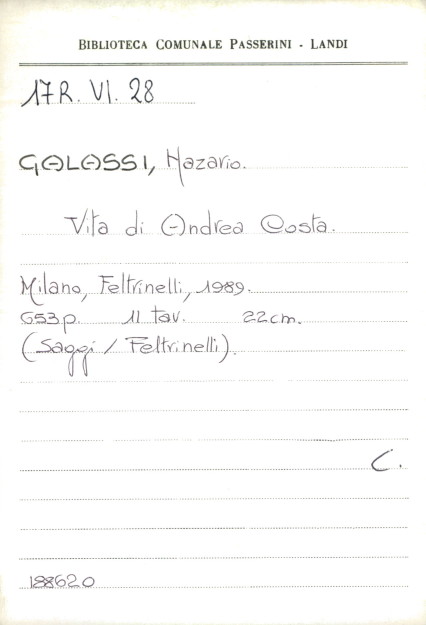 BIBLIOTECA COMUNALE PASSERINI - LANDI
17R. VI. 28
GALASSI, Nazario.
Vita di Andrea Costa.
Milano, Feltrinelli, 1989.
653p. 11 tav. 22cm.
(Saggi / Feltrinelli).
C.
188620